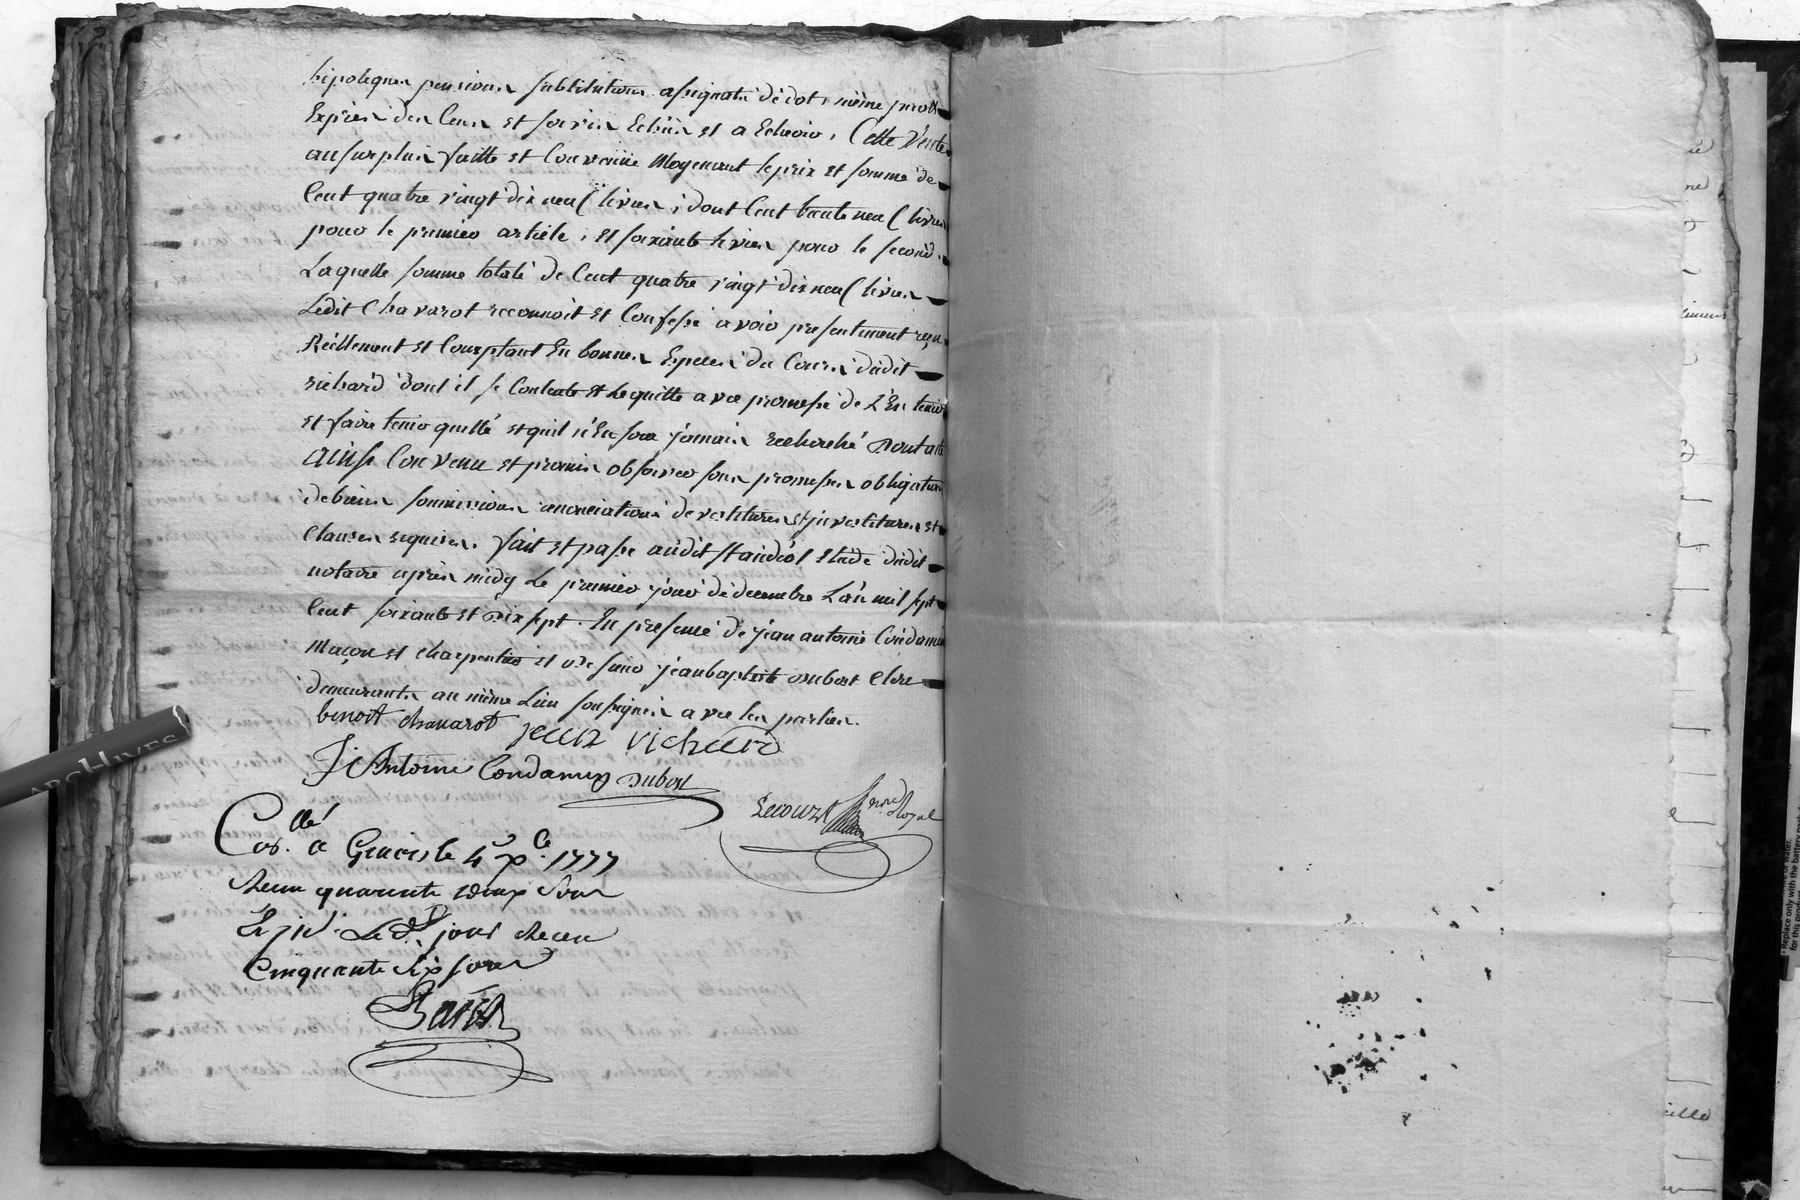 hipoteques pensions substitutions assignats de dot, même jusqu
Exprès des Cens et servis Echus et a Echeoir, Cette Vente
au surplus faitte et Convenüe Moyenant le prix et somme de
Cent quatre vingt dix neuf livres, dont Cent trente neuf livres
pour le premier article, Et soixante livres pour le second.
Laquelle somme totale de Cent quatre vingt dix neuf livres
Ledit Chavarot reconnoit et Confesse avoir presentement reçu
Réellement et Comptant En bonnes Especes du Cours dudit
richard dont il se Contente et Le quitte avec promesse de L'En tenir
et faire tenir quitte et quil n'En sera jamais recherché
ainsi Convenu et promis observer sous promesses obligations
de biens soumissions renonciations devestitures et jnvestitures et
Clauses requises. fait et passé audit St andéol Etude dudit
notaire après midy Le premier jour de decembre L'an mil sept
Cent soixante et dix sept. En presence de jean antoine Condamin
Maçon et charpentier et de sieur jean baptiste dubost Clerc
demeurants au même Lieu soussignés avec les parties.
benoît chavarot jean richard
J Antoine Condamin Dubost
Lecourt nore Royal
Collé
Con. a Givors le 4 Xbre 1777
Recu quarente deux sous
Le dt jour Recu
Cinquante six sous